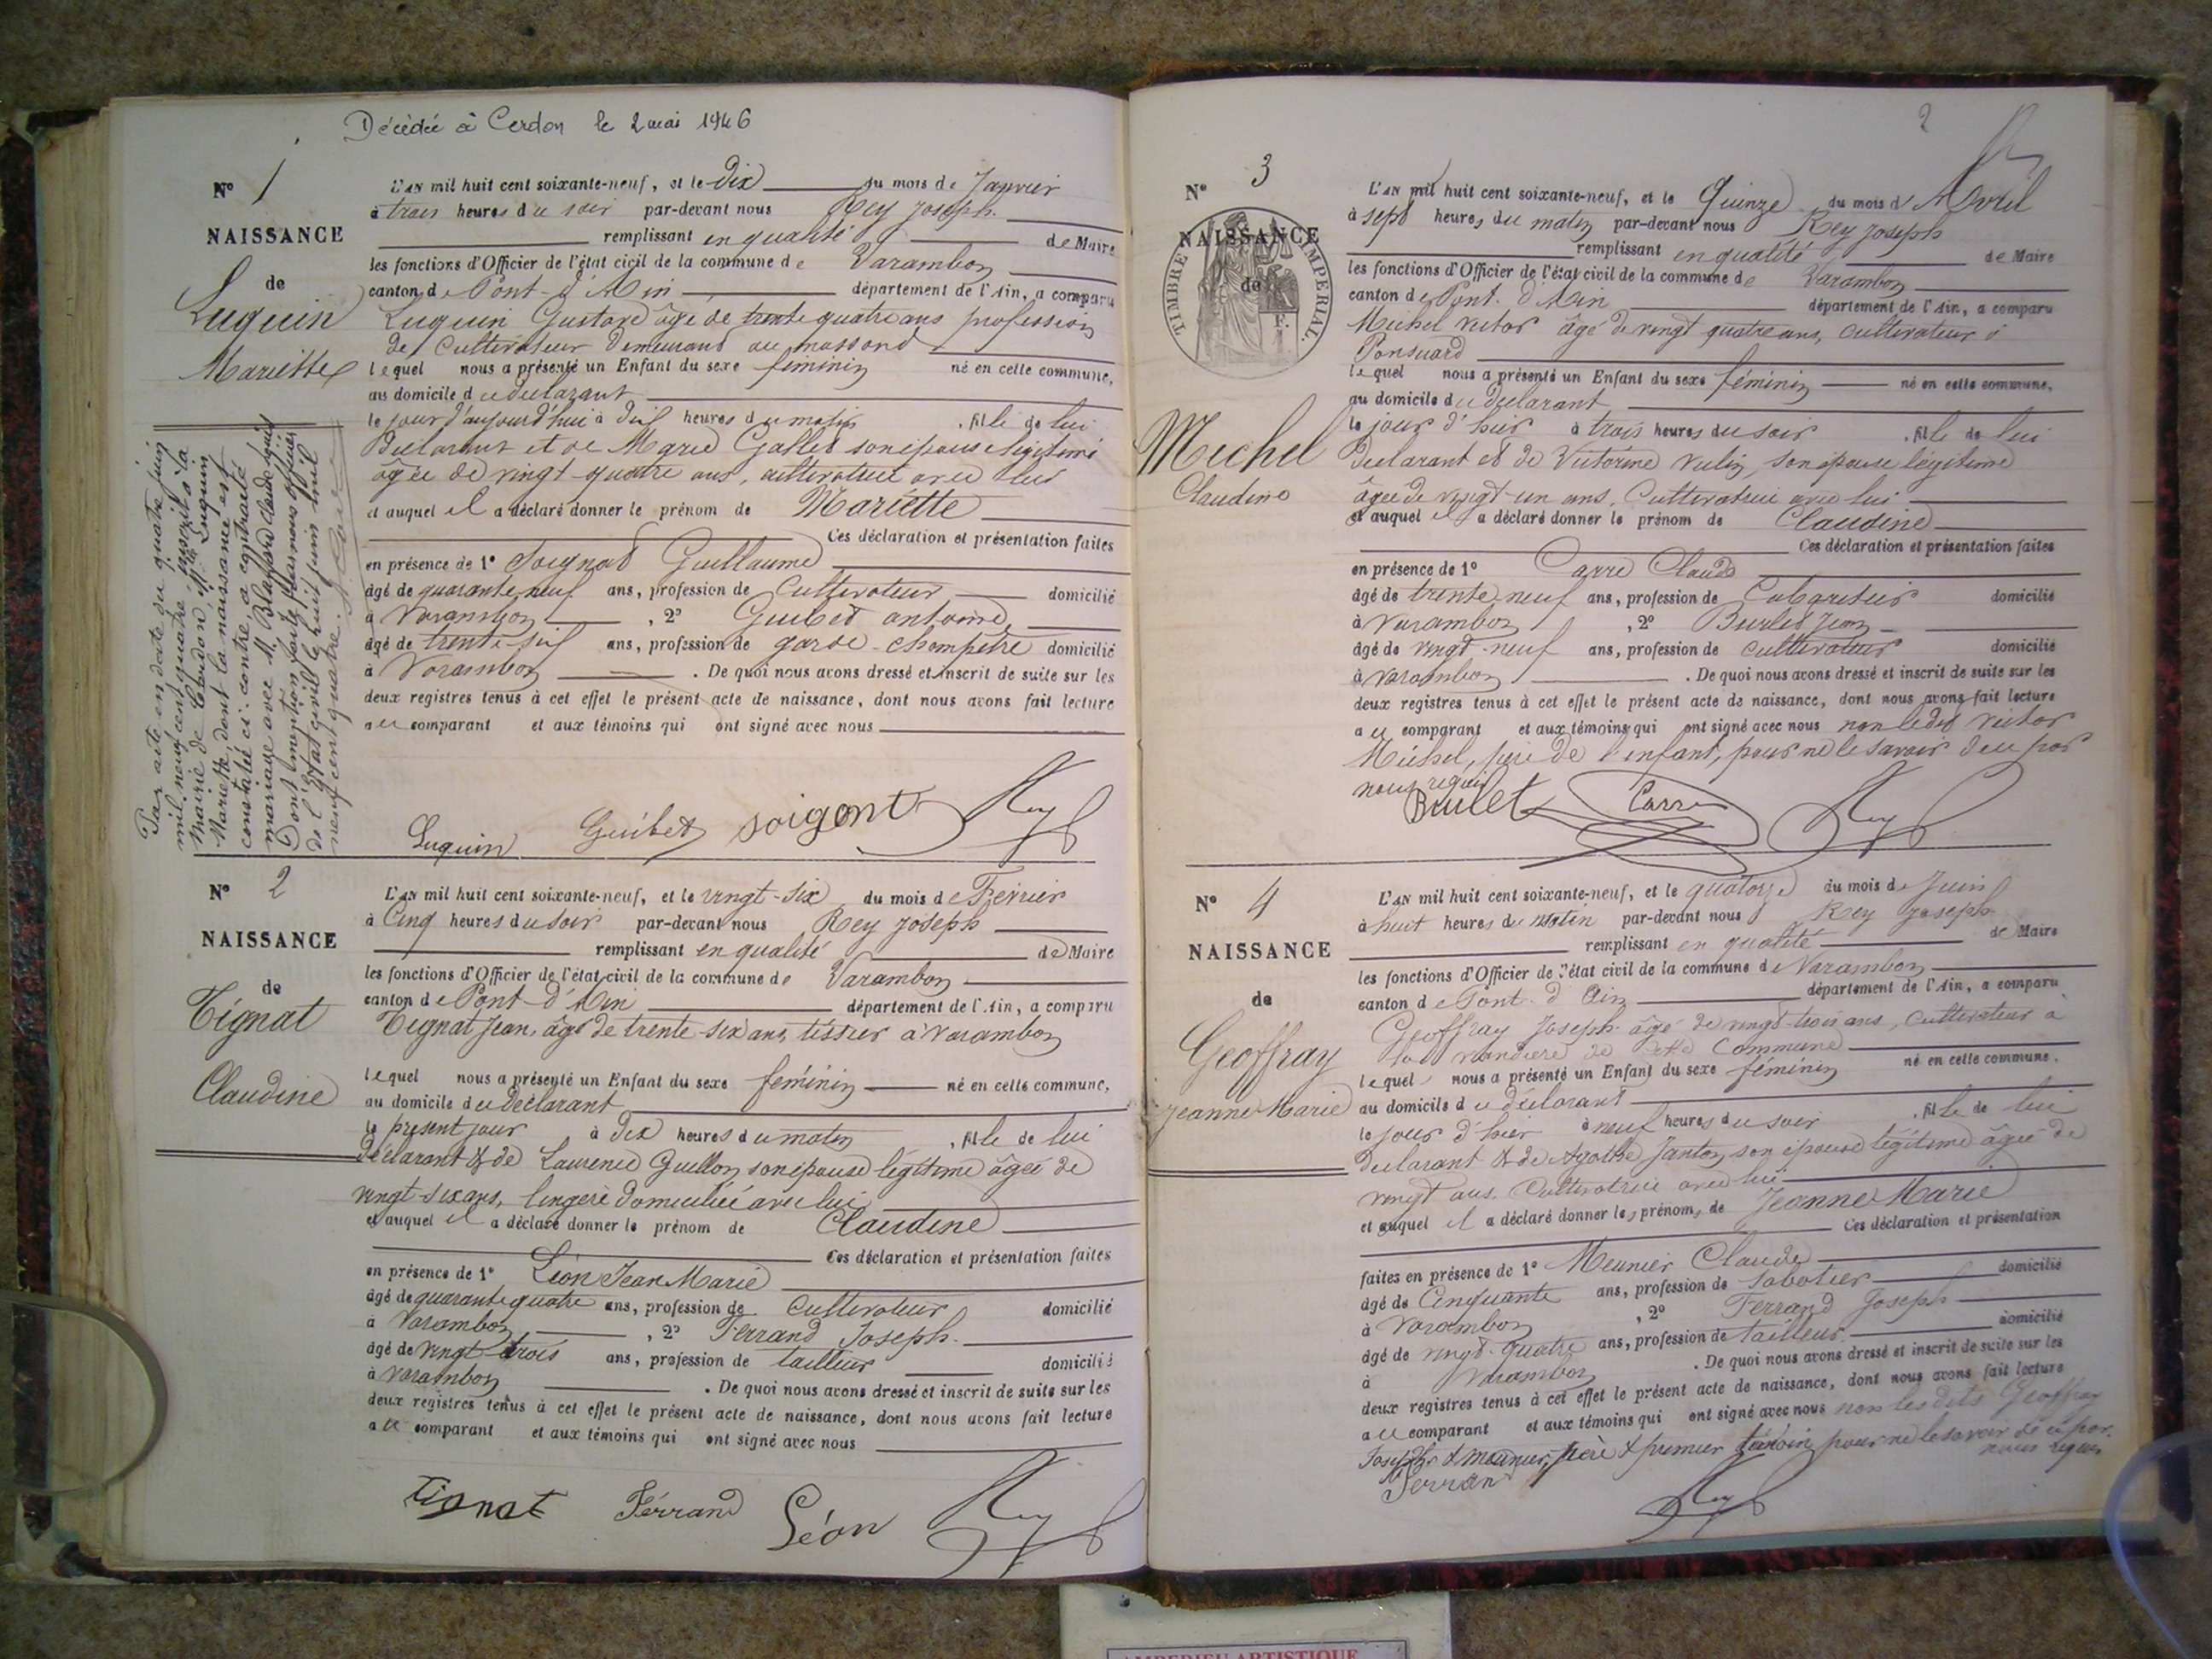 Décédée à Cerdon le 2 mai 1946
N° 1
NAISSANCE
de
Luquin
Mariette
L'AN mil huit cent soixante-neuf, et le dix du mois de Janvier
à trois heures du soir par-devant nous Rey Joseph
remplissant en qualité de Maire
les fonctions d'Officier de l'état civil de la commune de Varambon
canton de Pont-d'Ain département de l'Ain, a comparu
Luquin Gustave âgé de trente quatre ans profession
de Cultivateur demeurant au
lequel nous a présenté un Enfant du sexe féminin né en cette commune,
au domicile du déclarant
le jour d'aujourd'hui à dix heures du matin , fille de lui
déclarant et de Marie Gallet son épouse légitime
âgée de vingt-quatre ans, cultivatrice avec lui
et auquel il a déclaré donner le prénom de Mariette
Ces déclaration et présentation faites
en présence de 1° Soignat Guillaume
âgé de quarante neuf ans, profession de Cultivateur domicilié
à Varambon , 2° Guibet antoine
âgé de trente six ans, profession de garde-champêtre domicilié
à Varambon . De quoi nous avons dressé et inscrit de suite sur les
deux registres tenus à cet effet le présent acte de naissance, dont nous avons fait lecture
au comparant et aux témoins qui ont signé avec nous
Luquin Guibet soigent Rey
Par acte en date du quatre juin
mil neuf cent quatre inscrit à la
Mairie de Cerdon Mlle Luquin
Mariette dont la naissance est
constatée ci-contre, a contracté
mariage avec M. Blanchard Claude Louis
Dont mention faite par nous officier
de l'Etat civil le huit juin mil
neuf cent quatre.
N° 2
NAISSANCE
de
Tignat
Claudine
L'AN mil huit cent soixante-neuf, et le vingt-six du mois de Février
à Cinq heures du soir par-devant nous Rey Joseph
remplissant en qualité de Maire
les fonctions d'Officier de l'état civil de la commune de Varambon
canton de Pont-d'Ain département de l'Ain, a comparu
Tignat Jean, âgé de trente-six ans, tissier à Varambon
lequel nous a présenté un Enfant du sexe féminin né en cette commune,
au domicile du déclarant
le présent jour à dix heures du matin , fille de lui
Déclarant & de Laurence Guillon son épouse légitime âgée de
vingt-six ans, lingère domiciliée avec lui
et auquel il a déclaré donner le prénom de Claudine
Ces déclaration et présentation faites
en présence de 1° Léon Jean Marie
âgé de quarante quatre ans, profession de Cultivateur domicilié
à Varambon , 2° Ferrand Joseph
âgé de vingt-trois ans, profession de tailleur domicilié
à Varambon . De quoi nous avons dressé et inscrit de suite sur les
deux registres tenus à cet effet le présent acte de naissance, dont nous avons fait lecture
au comparant et aux témoins qui ont signé avec nous
tignat Férrand Léon Rey
2
N° 3
NAISSANCE
de
TIMBRE IMPERIAL.
Michel
Claudine
L'AN mil huit cent soixante-neuf, et le Quinze du mois d'Avril
à sept heures du matin par-devant nous Rey Joseph
remplissant en qualité de Maire
les fonctions d'Officier de l'état civil de la commune de Varambon
canton de Pont-d'Ain département de l'Ain, a comparu
Michel Victor âgé de vingt quatre ans, cultivateur à
Ponsuard
lequel nous a présenté un Enfant du sexe féminin né en cette commune,
au domicile du déclarant
le jour d'hier à trois heures du soir , fille de lui
déclarant et de Victorine Vulin, son épouse légitime
âgée de vingt-un ans, Cultivatrice avec lui
et auquel il a déclaré donner le prénom de Claudine
Ces déclaration et présentation faites
en présence de 1° Carre Claude
âgé de trente-neuf ans, profession de Cabaretier domicilié
à Varambon , 2° Burlet Jean
âgé de vingt-neuf ans, profession de cultivateur domicilié
à Varambon . De quoi nous avons dressé et inscrit de suite sur les
deux registres tenus à cet effet le présent acte de naissance, dont nous avons fait lecture
au comparant et aux témoins qui ont signé avec nous non ledit Victor
Michel, père de l'enfant, pour ne le savoir de ce par
nous requis
Burlet Carre Rey
N° 4
NAISSANCE
de
Geoffray
Jeanne Marie
L'AN mil huit cent soixante-neuf, et le quatorze du mois de Juin
à huit heures du matin par-devant nous Rey Joseph
remplissant en qualité de Maire
les fonctions d'Officier de l'état civil de la commune de Varambon
canton de Pont-d'Ain département de l'Ain, a comparu
Geoffray Joseph âgé de vingt-trois ans, cultivateur à
la de cette Commune
lequel nous a présenté un Enfant du sexe féminin né en cette commune.
au domicile du déclarant
le jour d'hier à neuf heures du soir , fille de lui
déclarant & de Agathe Janton, son épouse légitime âgée de
vingt ans, Cultivatrice avec lui
et auquel il a déclaré donner les prénoms de Jeanne Marie
Ces déclaration et présentation
faites en présence de 1° Meunier Claude
âgé de Cinquante ans, profession de Sabotier domicilié
à Varambon , 2° Ferrand Joseph
âgé de vingt-quatre ans, profession de tailleur domicilié
à Varambon . De quoi nous avons dressé et inscrit de suite sur les
deux registres tenus à cet effet le présent acte de naissance, dont nous avons fait lecture
au comparant et aux témoins qui ont signé avec nous non les dits Geoffray
Joseph & Meunier, père & premier témoin pour ne le savoir de ce par
nous requis
Ferrand Rey
AMBERIEU ARTISTIQUE